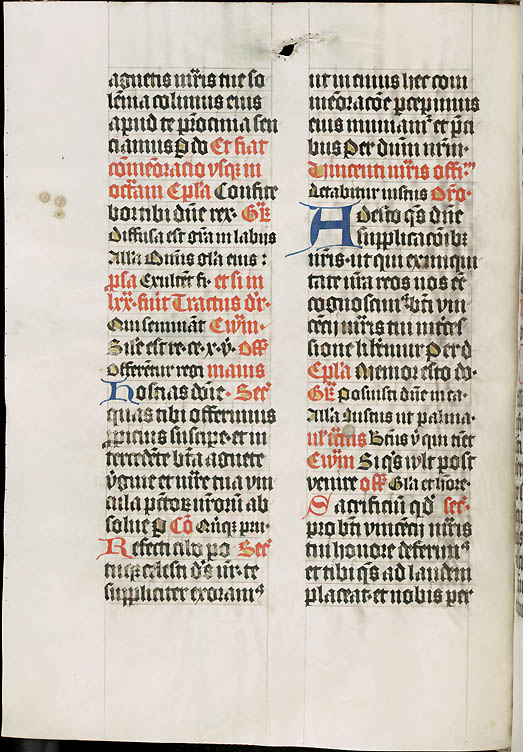 agnetis mr̄is tue so
lēmia colimus eius
apud te pr̄ocinia sen
ciamus P do Et fiat
cōmēoratio vsqꝫ in
octām Ep̄la Confite
bor tibi dn̄e rex · Gr̄
Diffusa est gr̄a in labijs
Alla Omīs gl̄a eius :
p̄sa Exultēt fi · et si in
lxx · fuit Tractus dr̄ ·
Qui semināt Ewm̄ ·
Sīle est re · ce · x · v̄ · Off
Offerētur regi maius
Hostias dn̄e · Secr̄
quas tibi offerimus
p̄picius suscipe · et in
tercedēte btā agnete
v̄gine et mr̄e tua vin
cula pct̄or nr̄orū ab
solue P Cō Qn̄qꝫ pru ·
Refecti cibo po Secr̄
tuqꝫ celesti ds̄ nr̄ · te
suppliciter exoramꝰ
ut in cuius hec com
mēoracōe percepimus
eius muniamr̄ et p̄ci
bus Per dnm̄ nrm̄ ·
Vincenti mr̄is offīm
Letabitur iustus Oro ·
Adesto qs̄ dn̄e
supplicacōibꝫ
nr̄is · ut qui ex iniqui
tate nr̄a reos nos eē
cognoscimꝰ btī vin
cēcij mr̄is tui int̄ces
sione lib̄emur Per d
Ep̄la Memor esto do ·
Gr̄ Posuisti dn̄e in ca ·
Alla Iustus ut palma ·
Ewm̄ Si qs̄ vult post
venire off Gl̄a et hōre ·
Sacrificiū qd̄ secr̄ ·
pro btī vincēcij mr̄is
tui honore deferimꝰ
et tibi qs̄ ad laudem
placeat · et nobis per